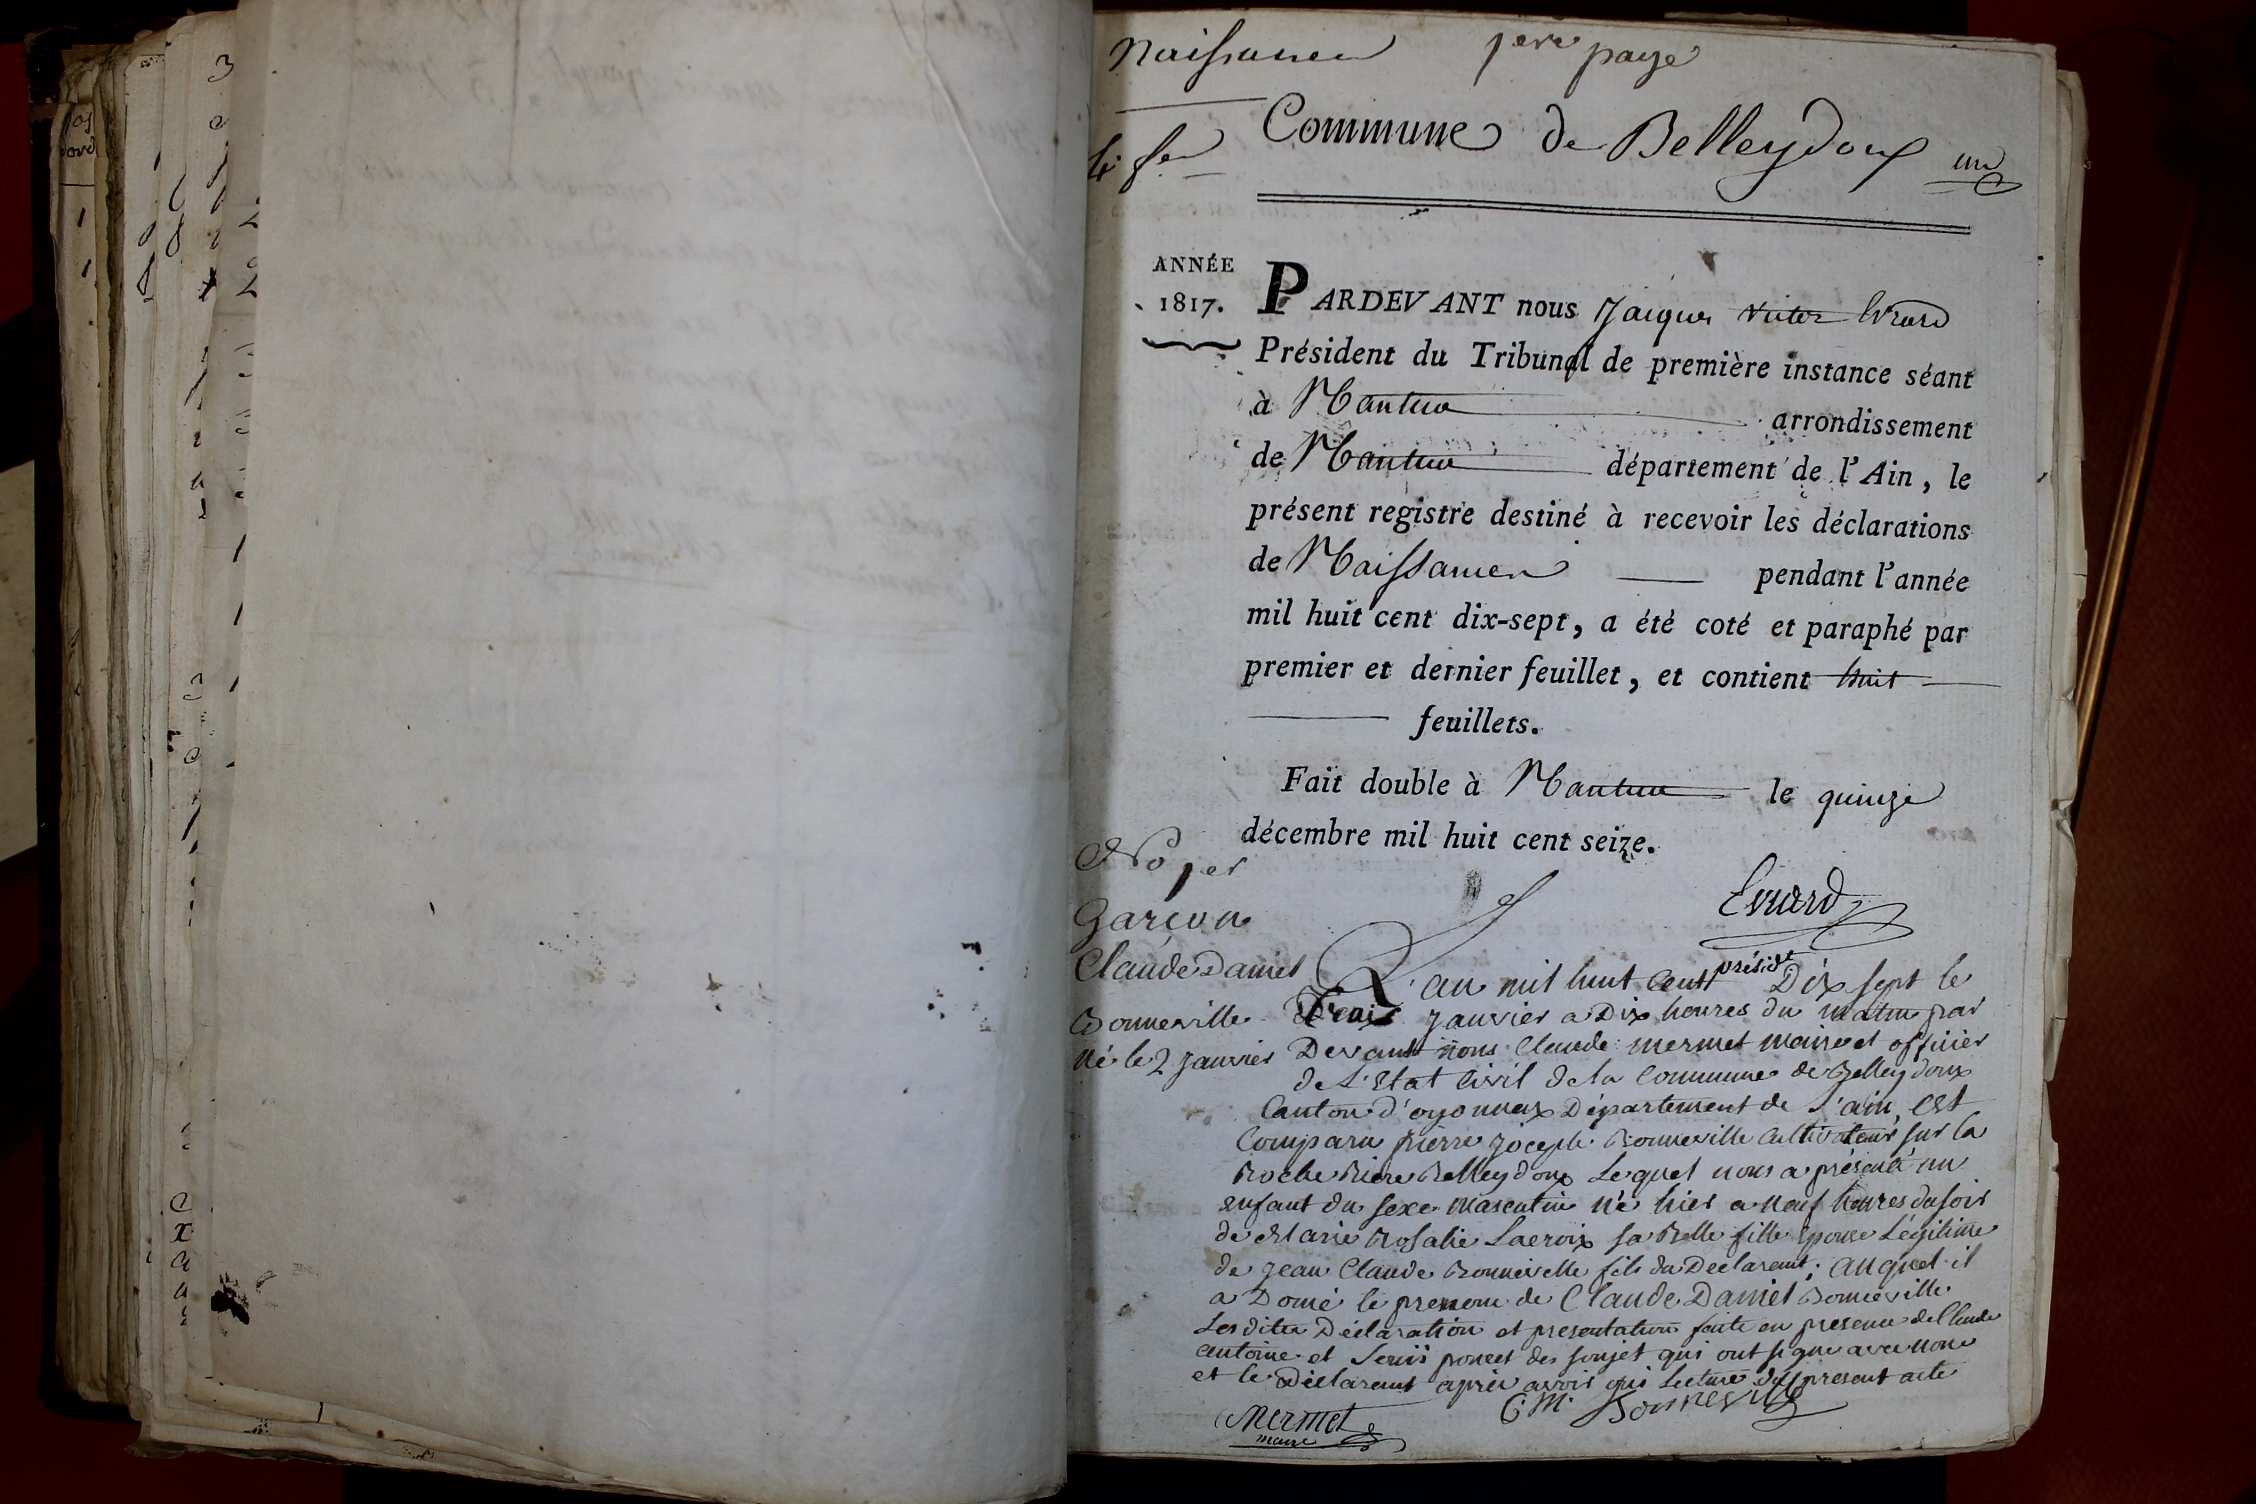 Naissances 1ere page
Commune de Belleydoux un
ANNÉE
1817.
PARDEVANT nous Jacques Victor Evrard
Président du Tribunal de première instance séant
à Nantua arrondissement
de Nantua département de l'Ain, le
présent registre destiné à recevoir les déclarations
de Naissances pendant l'année
mil huit cent dix-sept, a été coté et paraphé par
premier et dernier feuillet, et contient huit
feuillets.
Fait double à Nantua le quinze
décembre mil huit cent seize.
Evrard
présidt
No 1er
Garçon
Claude Daniel
Bonneville
Né le 2 janvier
L'an mil huit Cent Dix sept le
Trois janvier a Dix heures du matin par
Devant nous Claude mermet maire et officier
de L'Etat Civil de la Commune de Belleydoux
Canton d'oyonnax Département de L'ain, est
Comparu pierre joceph Bonneville Cultivateur sur la
Roche Riere Belleydoux Lequel nous a présenté un
enfant du sexe Masculin Né hier a Neuf heures du soir
de Marie Rosalie Lacroix sa Belle fille Epouse Légitime
de jean Claude Bonneville fils du Déclarant. auquel il
a Doné le prenom de Claude Daniel Bonneville
Les dites Déclaration et presentation faite en presence de Claude
antoine et poncet des qui ont signe avec nous
et le Déclarant après avoir oui Lecture du present acte
Mermet
maire
C. M. Bonneville